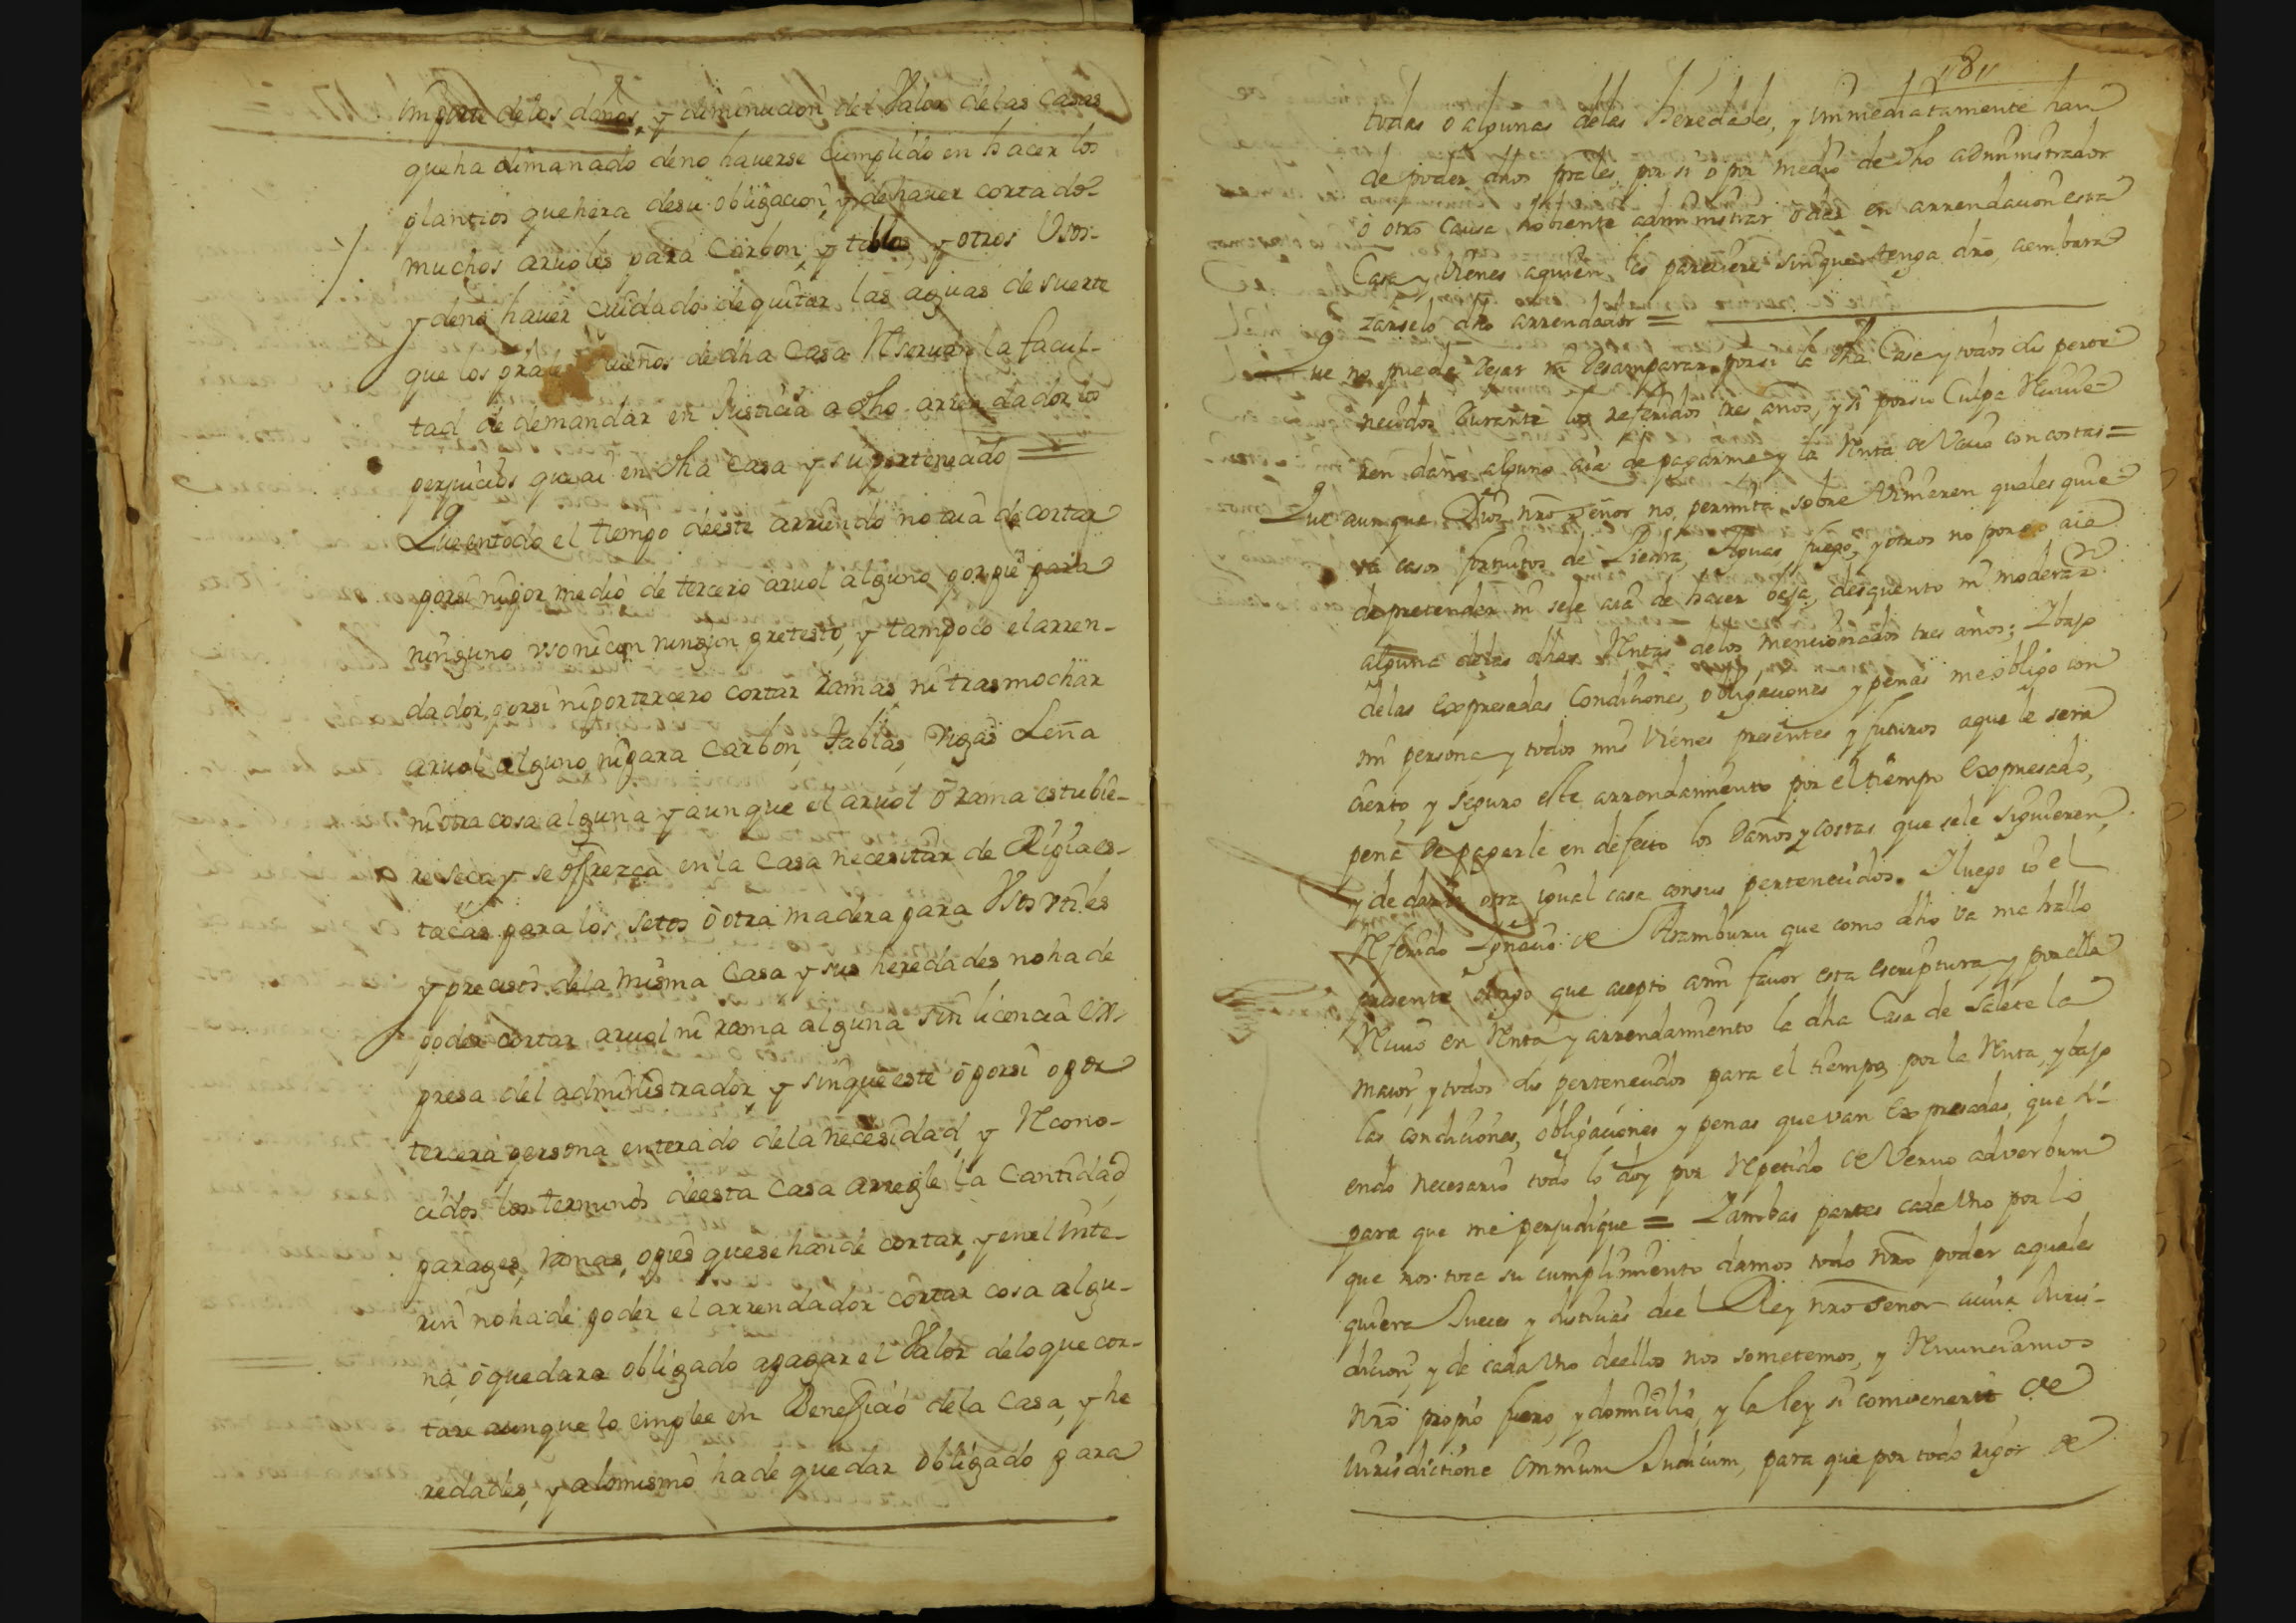 importe delos daños, y diminucion del Valor delas casas
que ha dimanado deno hauerse Cumplido en hacer los
plantios que hera desu obligacion, y de hauer cortado
muchos aruoles para Carbon, y tablas, y otros Usos
y deno hauer cuidado de quitar las aguas de suerte
que los dueños de dha Casa Reseruan la facul-
tad de demandar en Justicia a dho arrendador los
perjuicios que ai en dha Casa y su pertenecido =
Que entodo el tiempo deeste arriendo no aia de cortar
porsi ni por medio de tercero aruol alguno por pie para
ninguno uso ni con ningun pretesto, y tampoco el arren-
dador, porsi ni portercero cortar ramas ni trasmochar
aruol alguno ni para Carbon, Tablas, Vigas Leña
ni otra cosa alguna y aunque el aruol o rama estubie-
re seca y se ofrezca en la Casa necesitar de
tacas para los setos o otra madera para Usos utiles
y precisos dela misma Casa y sus heredades no ha de
poder cortar aruol ni rama alguna sin licencia ex-
presa del administrador, y sin que este o porsi o por
tercera persona enterado dela necesidad, y Recono-
cidos los terminos deesta Casa arregle la Cantidad
parages, ramas, o pies que se han de cortar, y en el inte-
rin no ha de poder el arrendador cortar cosa algu-
na, o quedara obligado apagar el Valor delo que cor-
tare aunque lo emplee en Beneficio dela Casa, y he
redades, y alomismo ha de quedar obligado para
181
todas o algunas delas heredades, y immediatamente han
de poder dhos prales por si o por medio de dho administrador
o otro Causa hobiente administrar o dar en arrendacion esta
Casa y Vienes aquien les pareciere sin que tenga dro aembara
zarselo dho arrendador =
Que no pueda Dejar ni Desamparar porsi la dha Casa y todos sus perte
necidos Durante los referidos tres años, y si porsu Culpa Reciuie-
ren daño alguno aia de pagarme y la Renta de Vacio con costas =
Que aunque Dios nro señor no permita sobre Vinieren quales quie-
ra casos fortuitos de Piedra, Aguas, fuego, y otros no por eso aia
de pretender ni sele aia de hacer baja, desquento ni moderaz.n
alguna delas dhas Rentas delos mencionados tres años; Y bajo
delas Expresadas Condiciones, obligaciones y penas me obligo con
mi persona y todos mis Vienes presentes y futuros aque le sera
cierto, y seguro este arrendamiento por el tiempo Expresado,
pena de pagarle en defecto los Daños y costas que sele siguieren,
y de darle otra igual casa consus pertenecidos. Y luego io el
Referido Ignacio de Aramburu que como dho va me hallo
presente otorgo que acepto ami fauor esta escriptura y por ella
Reciuo en Renta y arrendamiento la dha Casa de Salete la
maior, y todos sus pertenecidos para el tiempo, por la Renta, y bajo
las condiciones, obligaciones y penas que van Expresadas, que si-
endo necesario todo lo doy por Repetido de Veruo adverbum
para que me perjudique = Y ambas partes cada Uno por lo
que nos toca su cumplimiento damos todo nro poder aquales
quiera Jueces y Justicias del Rey nro señor acuia Juris-
dicion, y de cada Uno deellos nos sometemos, y Renunciamos
nro propio fuero, y domicilio, y la ley si convenerit de
Jurisdictione omnium Judicum, para que por todo rigor de